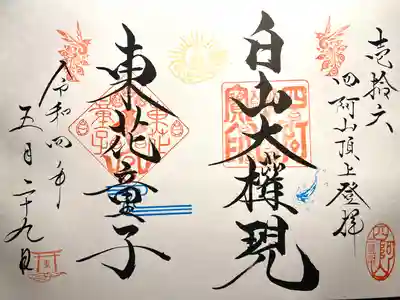 壱拾六
四阿山頂上登拝
白山大權現
東花童子
令和四年
五月二十九日